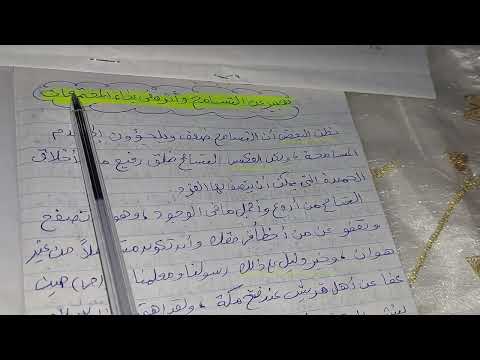 تعبير عن التسامح وأثره في بناء المجتمعات
يظن البعض أن التسامح ضعف ويلجؤون إلى عدم
المسامحة، ولكن العكس التسامح خلق رفيع من الأخلاق
الحميدة التي يمكن أن يتصف بها الفرد
التسامح من أروع وأجمل ما في الوجود، وهو أن تصفح
وتعفو عن من أخطأ في حقك وأن تكون من غير
هوان، وخير دليل على ذلك رسولنا ومعلمنا (ص) حين
عفا عن أهل قريش عند فتح مكة، ولقد اهتم